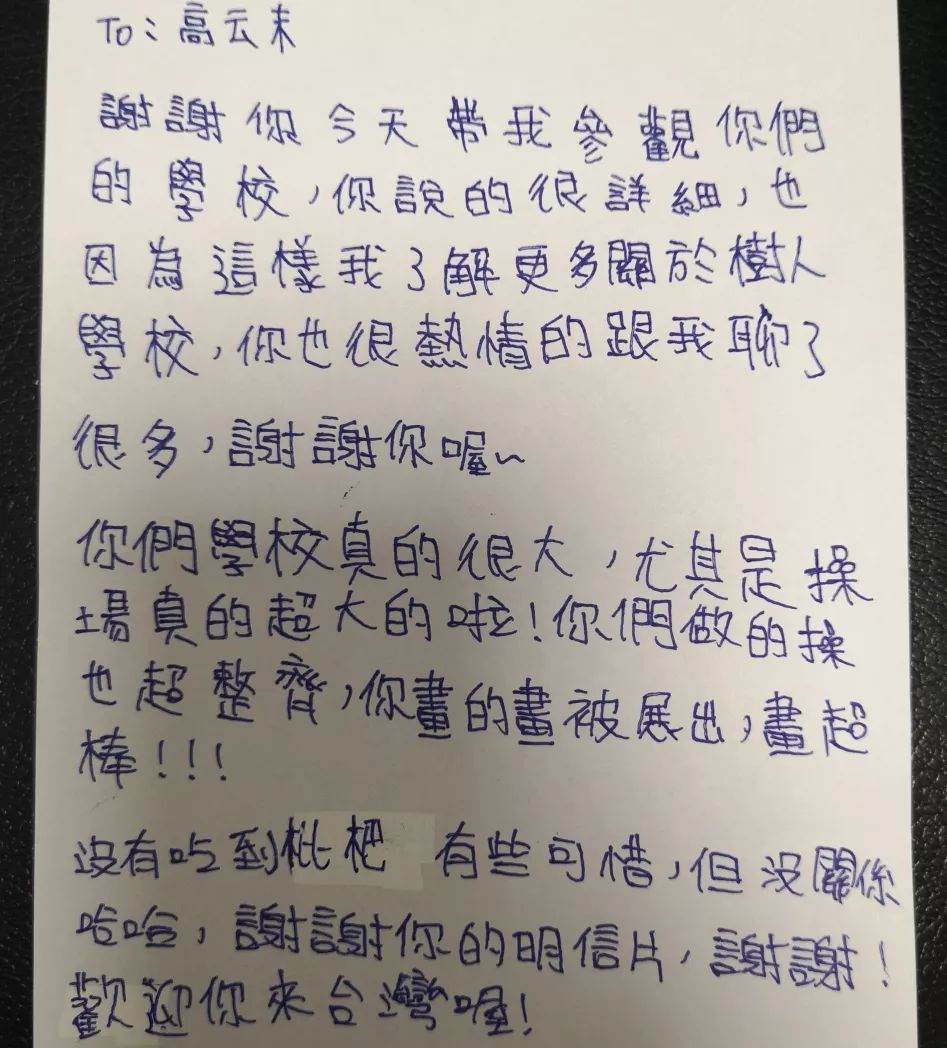 To：高云未
謝謝你今天帶我參觀你們
的學校，你說的很詳細，也
因為這樣我了解更多關於樹人
學校，你也很熱情的跟我聊了
很多，謝謝你喔~
你們學校真的很大，尤其是操
場真的超大的啦！你們做的操
也超整齊，你畫的畫被展出，畫超
棒！！！
沒有吃到枇杷 有些可惜，但沒關係
哈哈，謝謝你的明信片，謝謝！
歡迎你來台灣喔！